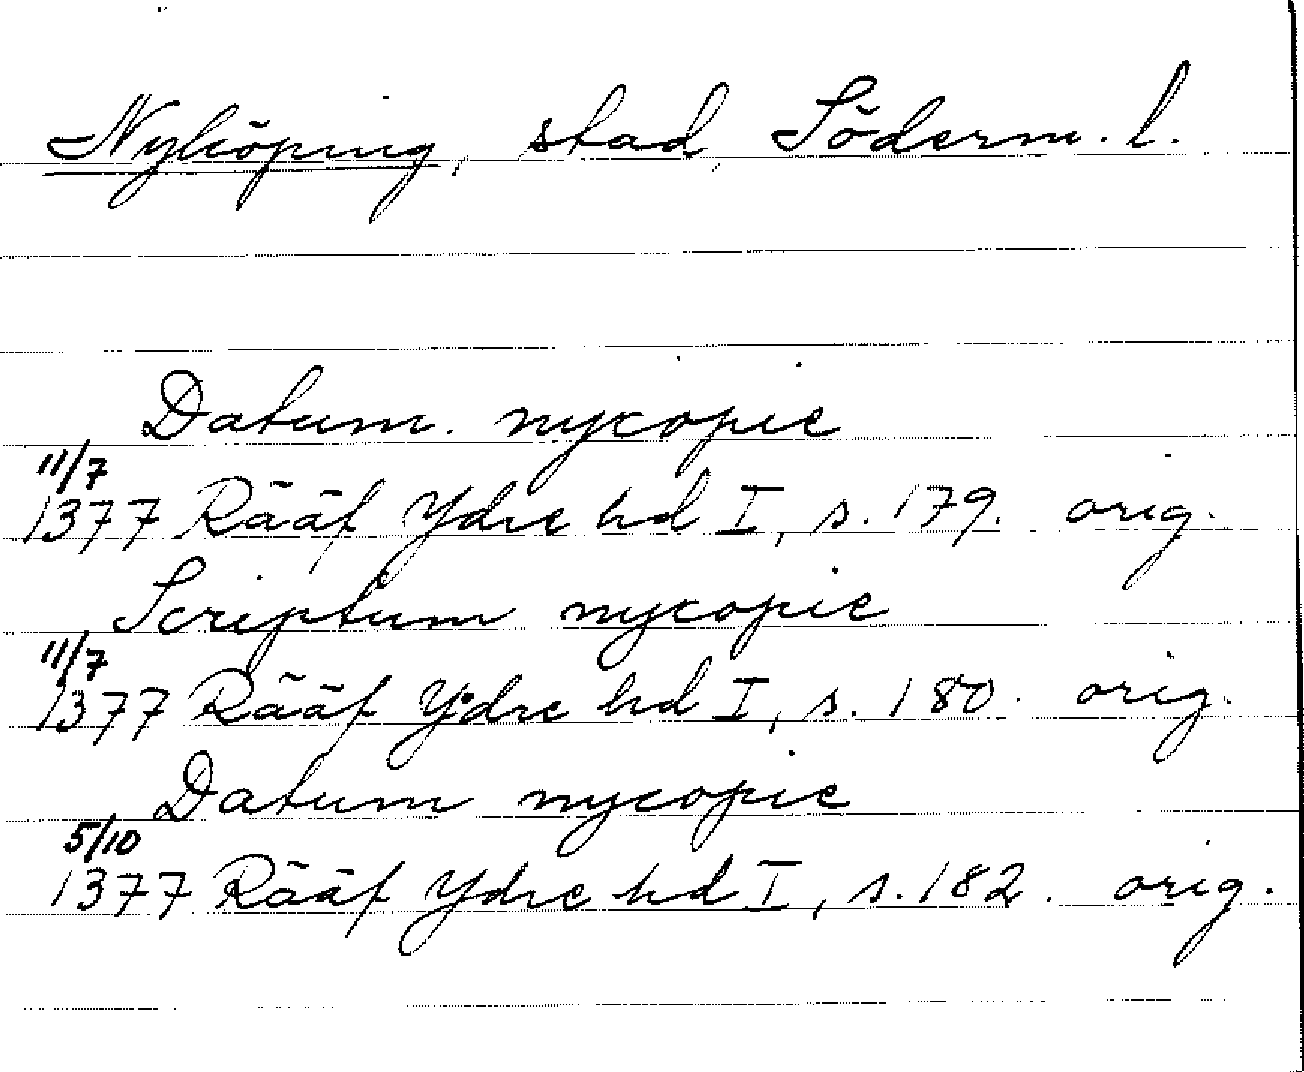 Nyköping, stad, Söderm. l.
Datum. nycopie
11/7
1377 Rääf Ydre hd I, s. 179. orig.
Scriptum nycopie
11/7
1377 Rääf Ydre hd I, s. 180. orig.
Datum nycopie
5/10
1377 Rääf Ydre hd I, s. 182. orig.